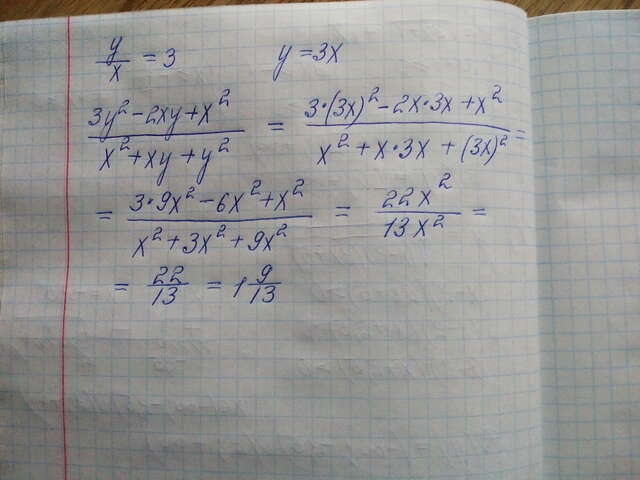 y/x = 3    y = 3x
(3y² - 2xy + x²)/(x² + xy + y²) = (3·(3x)² - 2x·3x + x²)/(x² + x·3x + (3x)²) =
= (3·9x² - 6x² + x²)/(x² + 3x² + 9x²) = 22x²/13x² =
= 22/13 = 1 9/13